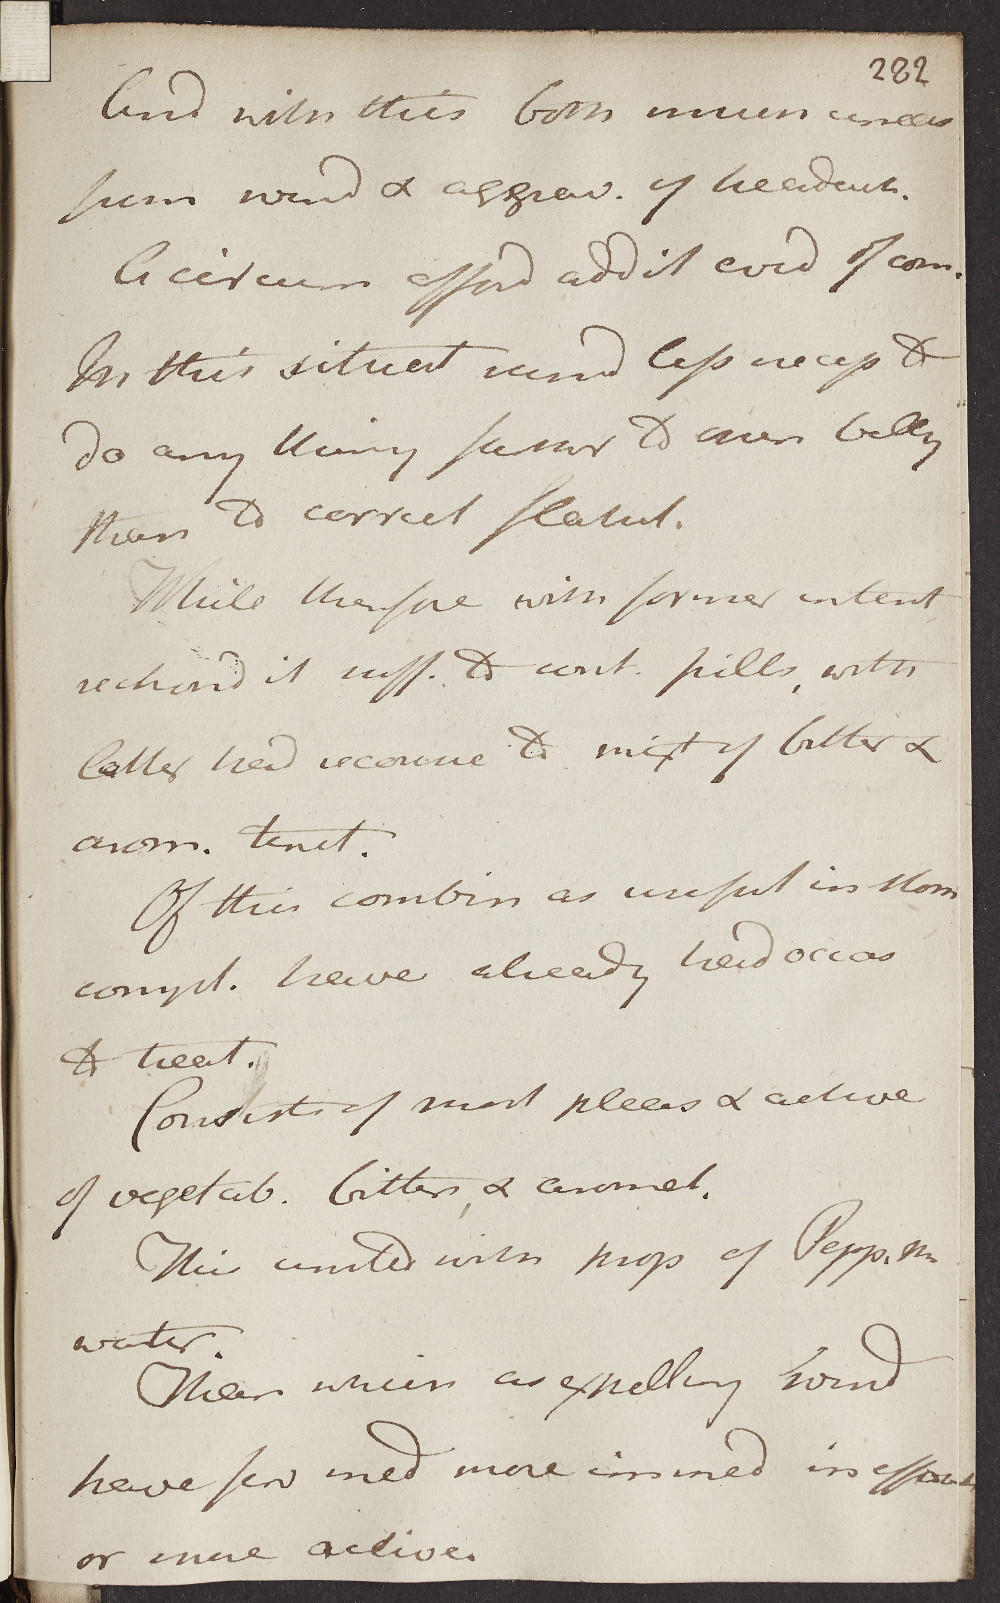 282
And with this both much uneas
from wind & aggrav. of headach.
A circum afford addit evid of com.
In this situat round less necess to
do any thing further to open belly
than to correct flatul.
While therefore with former intent
reckon'd it suff. to cont. pills, with
latter had recourse to mixt of bitter &
arom. tinct.
Of this combin as useful in stom
compl. have already had occas
to treat.
Consists of most pleas & active
of vegetab. bitters, & aromat.
This united with prop of Pepp. m
water.
Than which as expelling wind
have few med more immed in effect
or more active.